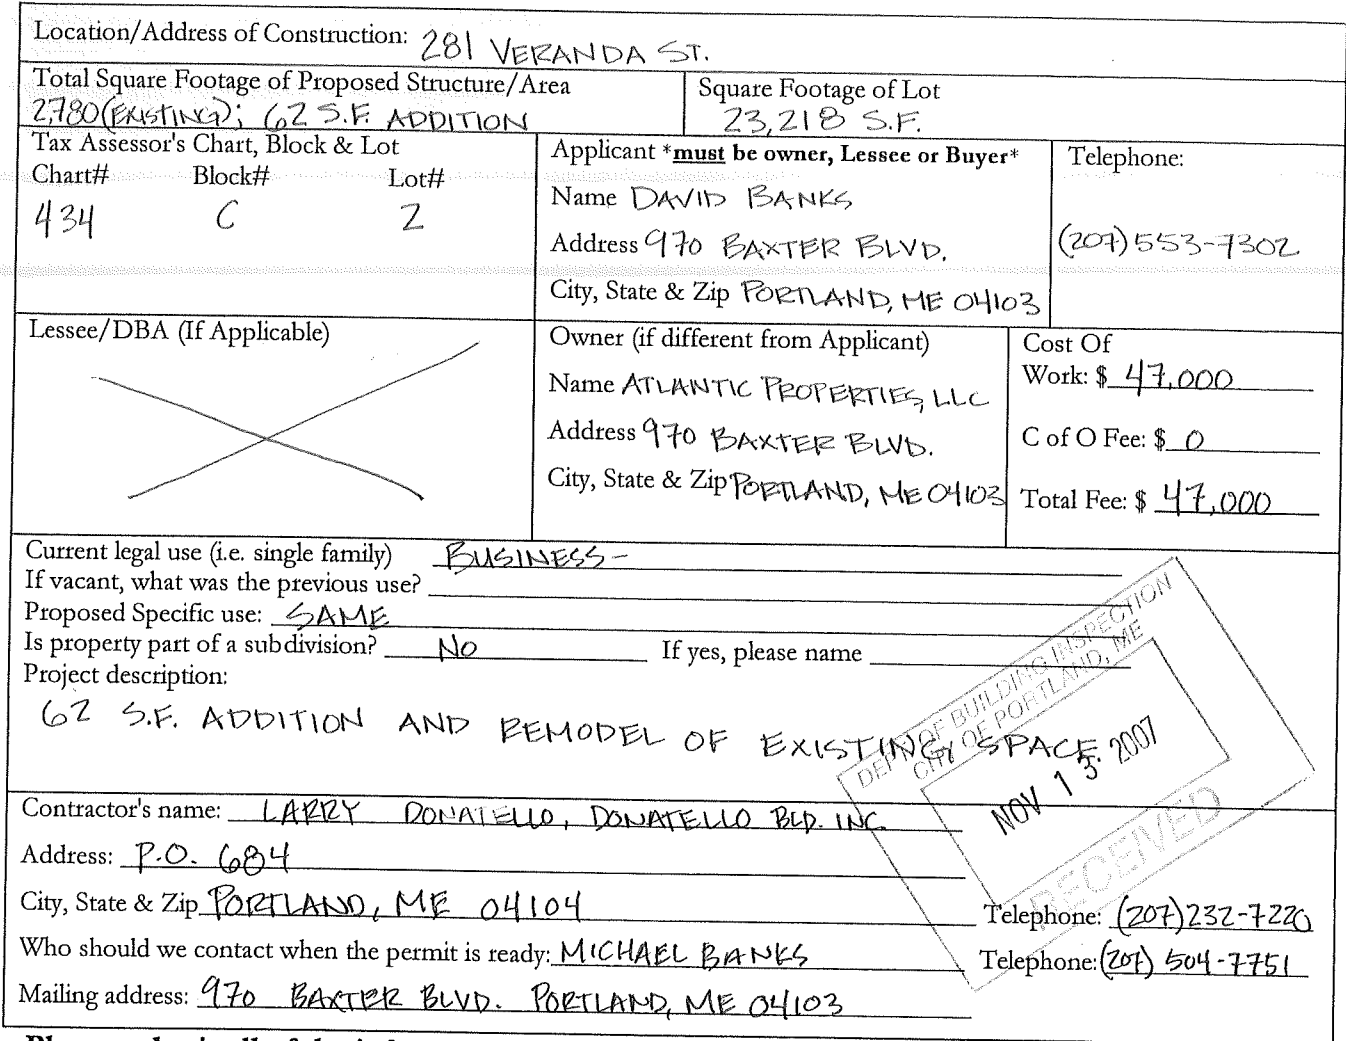 Location/Address of Construction: 281 VERANDA ST.
Total Square Footage of Proposed Structure/Area
2,780 (EXISTING); 62 S.F. ADDITION
Square Footage of Lot
23,218 S.F.
Tax Assessor's Chart, Block & Lot
Chart# Block# Lot#
434 C 2
Applicant *must be owner, Lessee or Buyer*
Name DAVID BANKS
Address 970 BAXTER BLVD.
City, State & Zip PORTLAND, ME 04103
Telephone:
(207) 553-7302
Lessee/DBA (If Applicable)
Owner (if different from Applicant)
Name ATLANTIC PROPERTIES, LLC
Address 970 BAXTER BLVD.
City, State & Zip PORTLAND, ME 04103
Cost Of
Work: $ 47,000
C of O Fee: $ 0
Total Fee: $ 47,000
Current legal use (i.e. single family) BUSINESS-
If vacant, what was the previous use?
Proposed Specific use: SAME
Is property part of a subdivision? NO If yes, please name
Project description:
62 S.F. ADDITION AND REMODEL OF EXISTING SPACE.
DEPT. OF BUILDING INSPECTION
CITY OF PORTLAND, ME
NOV 13 2007
RECEIVED
Contractor's name: LARRY DONATELLO, DONATELLO BLD. INC
Address: P.O. 684
City, State & Zip PORTLAND, ME 04104 Telephone: (207) 232-7220
Who should we contact when the permit is ready: MICHAEL BANKS Telephone: (207) 504-7751
Mailing address: 970 BAXTER BLVD. PORTLAND, ME 04103